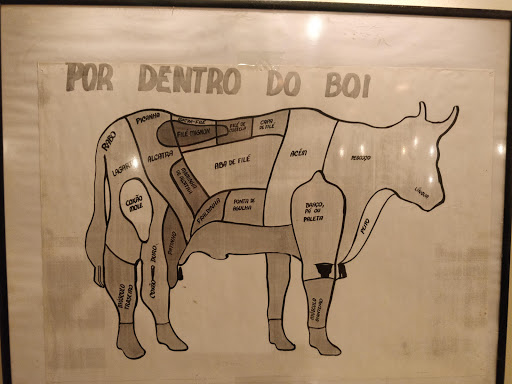 POR DENTRO DO BOI
RABO
PICANHA
FILÉ MIGNON
FILÉ DE
COSTELA
CAPA
DE FILÉ
ACÉM
PESCOÇO
LÍNGUA
LAGARTO
ALCATRA
ABA DE FILÉ
MAMINHA
DE ALCATRA
COXÃO
MOLE
FRALDINHA
PONTA DE
AGULHA
BRAÇO,
PÁ OU
PALETA
PEITO
PATINHO
COXÃO DURO
MÚSCULO
TRASEIRO
MÚSCULO
DIANTEIRO